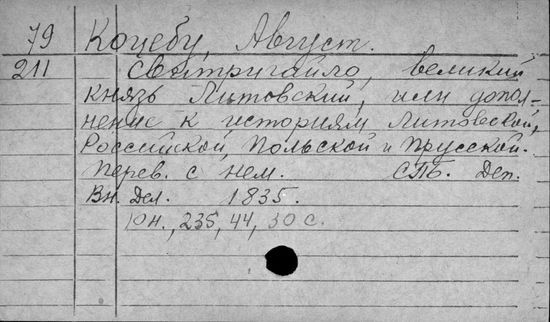 79 Коцебу, Август.
211 Свитригайло, великий
князь Литовский, или допол-
нение к историям Литовской,
Российской, Польской и Прусской.
Перев. с нем. СПб. Деп.
Вн. Дел. 1835.
10н., 235, 44, 30 с.